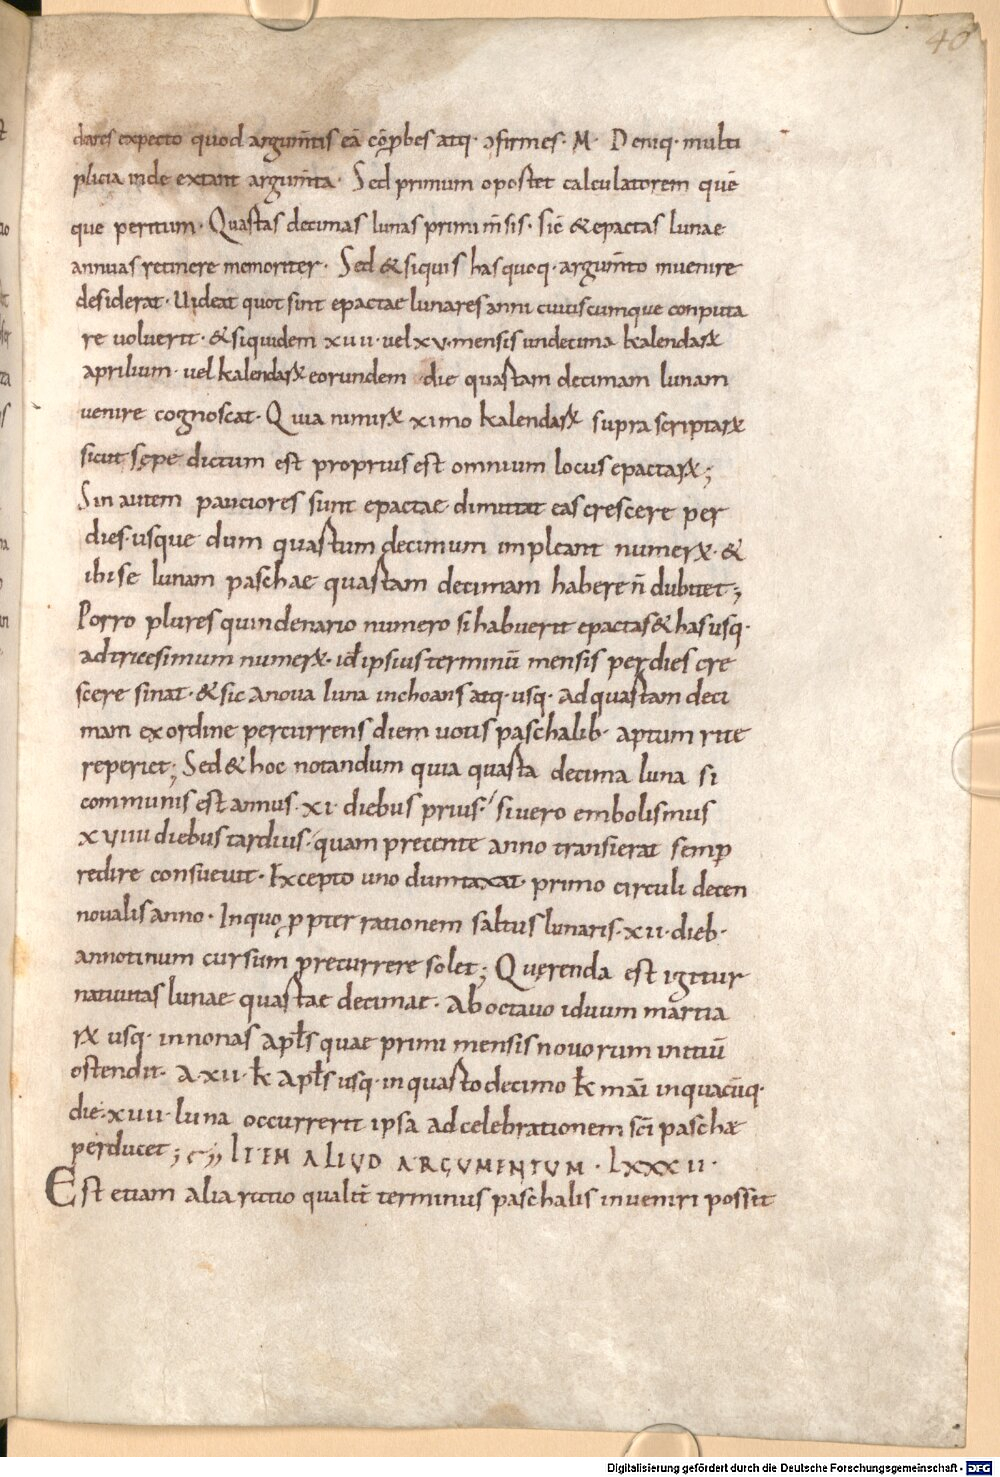 40
dares expecto quod argum̄tis eā cōp̄bes atq· ɔfirmes· M· Deniq· multi
plicia inde extant argum̄ta· Sed primum oportet calculatorem quē
que peritum· Quartas decimas lunas primi m̄sis· sic̄ & epactas lunae
annuas retinere memoriter· Sed & siquis has quoq· argum̄to inuenire
desiderat· Uideat quot sint epactae lunares anni cuiuscumque conputa
re uoluerit· & siquidem xuii· uel xv· mensis undecima kalendaꝝ
aprilium· uel kalendaꝝ eorundem die quartam decimam lunam
uenire cognoscat· Quia nimiꝝ ximo kalendaꝝ supra scriptaꝝ
sicut sępe dictum est proprius est omnium locus epactaꝝ;
Sin autem pauciores sunt epactae· dimittat eas crescere per
dies· usque dum quartum decimum impleant numeꝝ· &
ibi se lunam paschae quartam decimam habere n̄ dubitet;
Porro plures quindenario numero si habuerit epactas & has usq·
ad tricesimum numeꝝ· id ipsius terminū mensis per dies cre
scere sinat· & sic a noua luna inchoans atq· usq· ad quartam deci
mam ex ordine percurrens diem uotis paschalib· aptum rite
reperiet; Sed & hoc notandum quia quarta decima luna si
communis est annus· xi· diebus prius· si uero embolismus
xviiii diebus tardius· quam precente anno transierat semp̄
redire consueuit· Excepto uno dumtaxat· primo circuli decen
novalis anno· In quo ꝓpter rationem saltus lunaris· xii· dieb·
annotinum cursum precurrere solet; Quęrenda est igitur
natiuitas lunae quartae decimae· Ab octauo iduum martia
ꝝ usq· in nonas apr̄ls quae primi mensis nouorum initiū
ostendit· A· xii· k̄ apr̄ls usq· in quarto decimo k̄ mai in quacūq·
die· xiiii· luna occurrerit ipsa ad celebrationem sc̄i paschæ
perducet; ITEM ALIUD ARGUMENTUM· LXXXII·
Est etiam alia ratio qualit̄ terminus paschalis inueniri possit
Digitalisierung gefördert durch die Deutsche Forschungsgemeinschaft - DFG